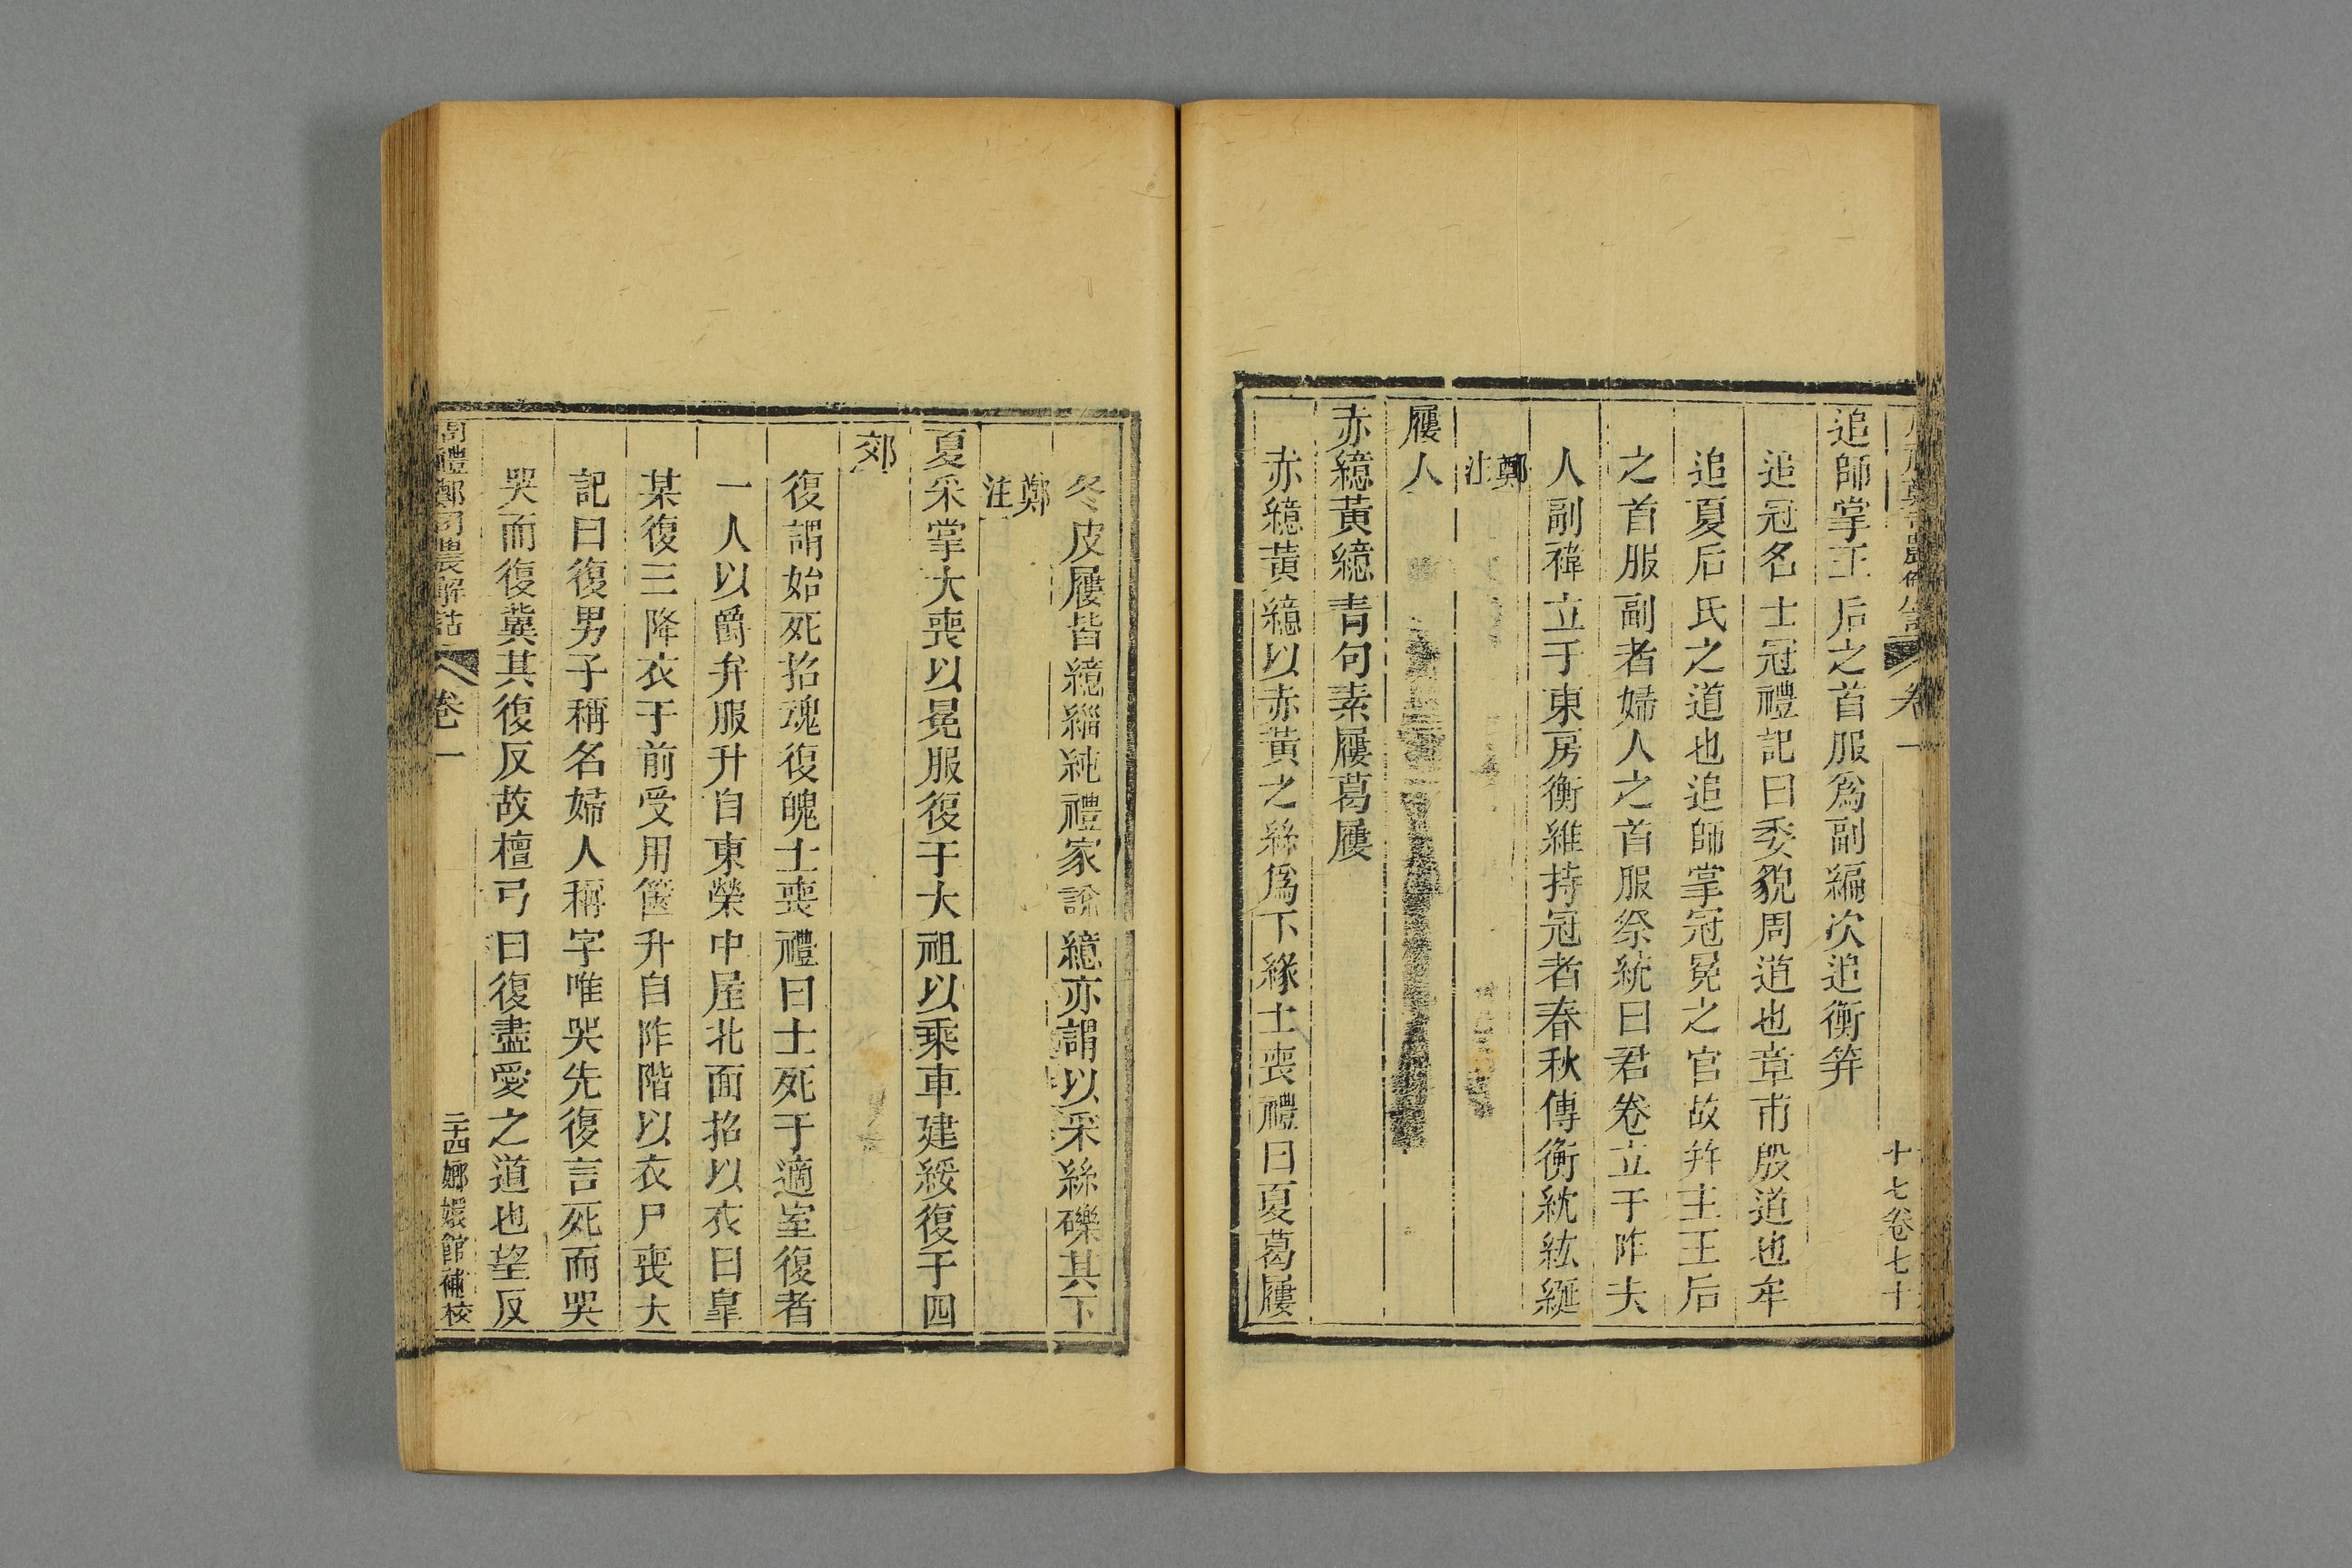 卷一
十七卷七十
追師掌王后之首服爲副編次追衡笄
追冠名士冠禮記曰委貌周道也章甫殷道也牟
追夏后氏之道也追師掌冠冕之官故幷主王后
之首服副者婦人之首服祭統曰君卷立于阼夫
人副褘立于東房衡維持冠者春秋傳衡紞紘綖
鄭注
屨人
赤繶黃繶青句素屨葛屨
赤繶黃繶以赤黃之絲爲下緣士喪禮曰夏葛屨
冬皮屨皆繶緇純禮家說繶亦謂以采絲礫其下
鄭注
夏采掌大喪以冕服復于大祖以乘車建綏復于四
郊
復謂始死招魂復魄士喪禮曰士死于適室復者
一人以爵弁服升自東榮中屋北面招以衣曰皐
某復三降衣于前受用篋升自阼階以衣尸喪大
記曰復男子稱名婦人稱字唯哭先復言死而哭
哭而復冀其復反故檀弓曰復盡愛之道也望反
周禮鄭司農解詁 卷一
二十四嫏嬛館補校